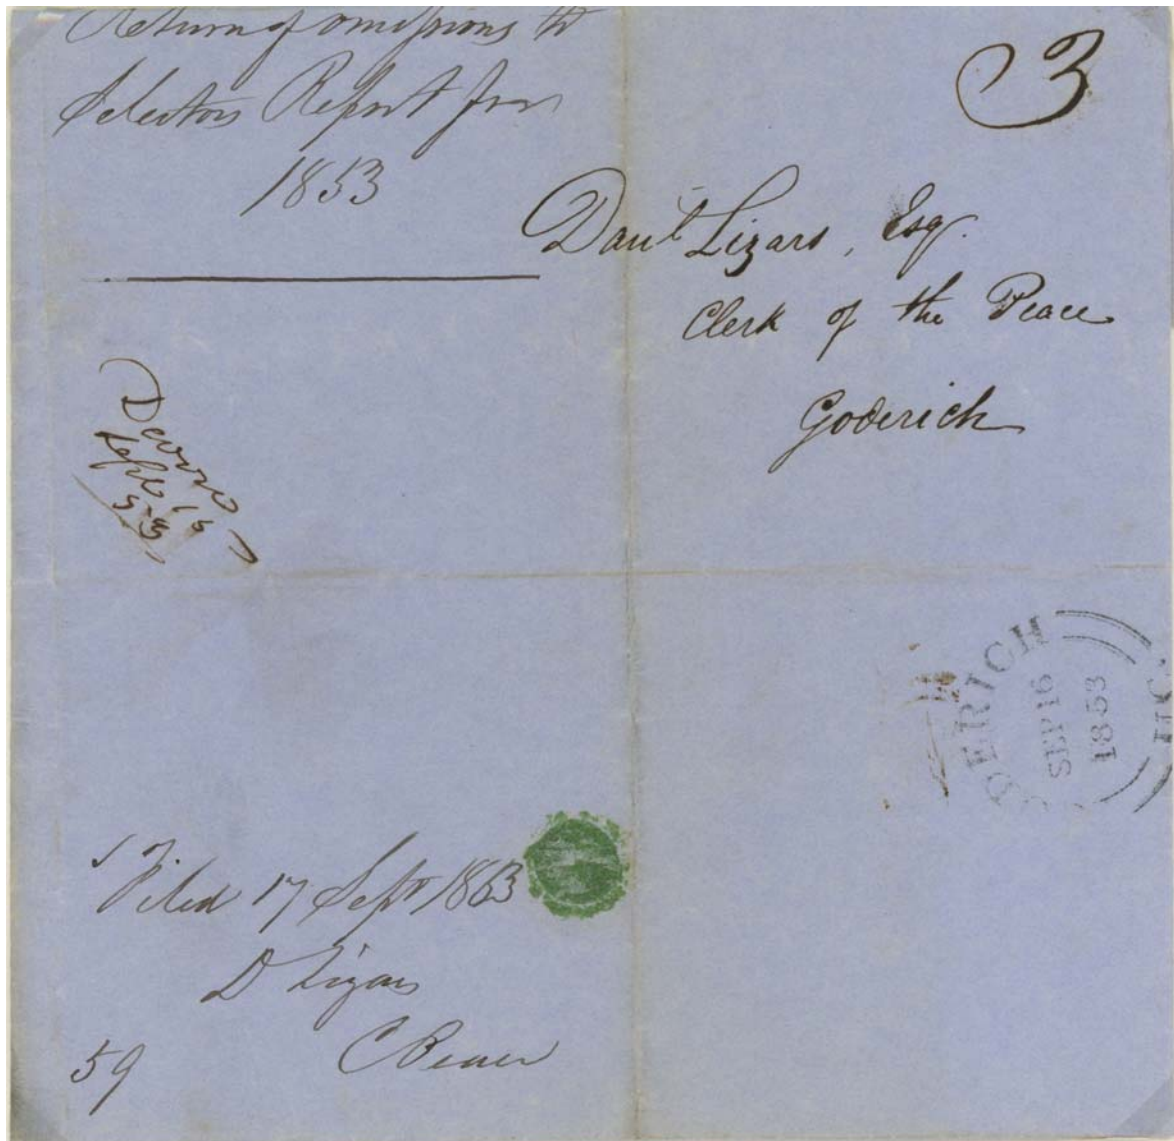 Return of omissions to
Selectors Report for
1853
3
Danl Lizars, Esq.
Clerk of the Peace
Goderich
Sept 15
53
DERICH
SEP 16
1853
Filed 17 Sept 1853
D Lizars
C Peace
59